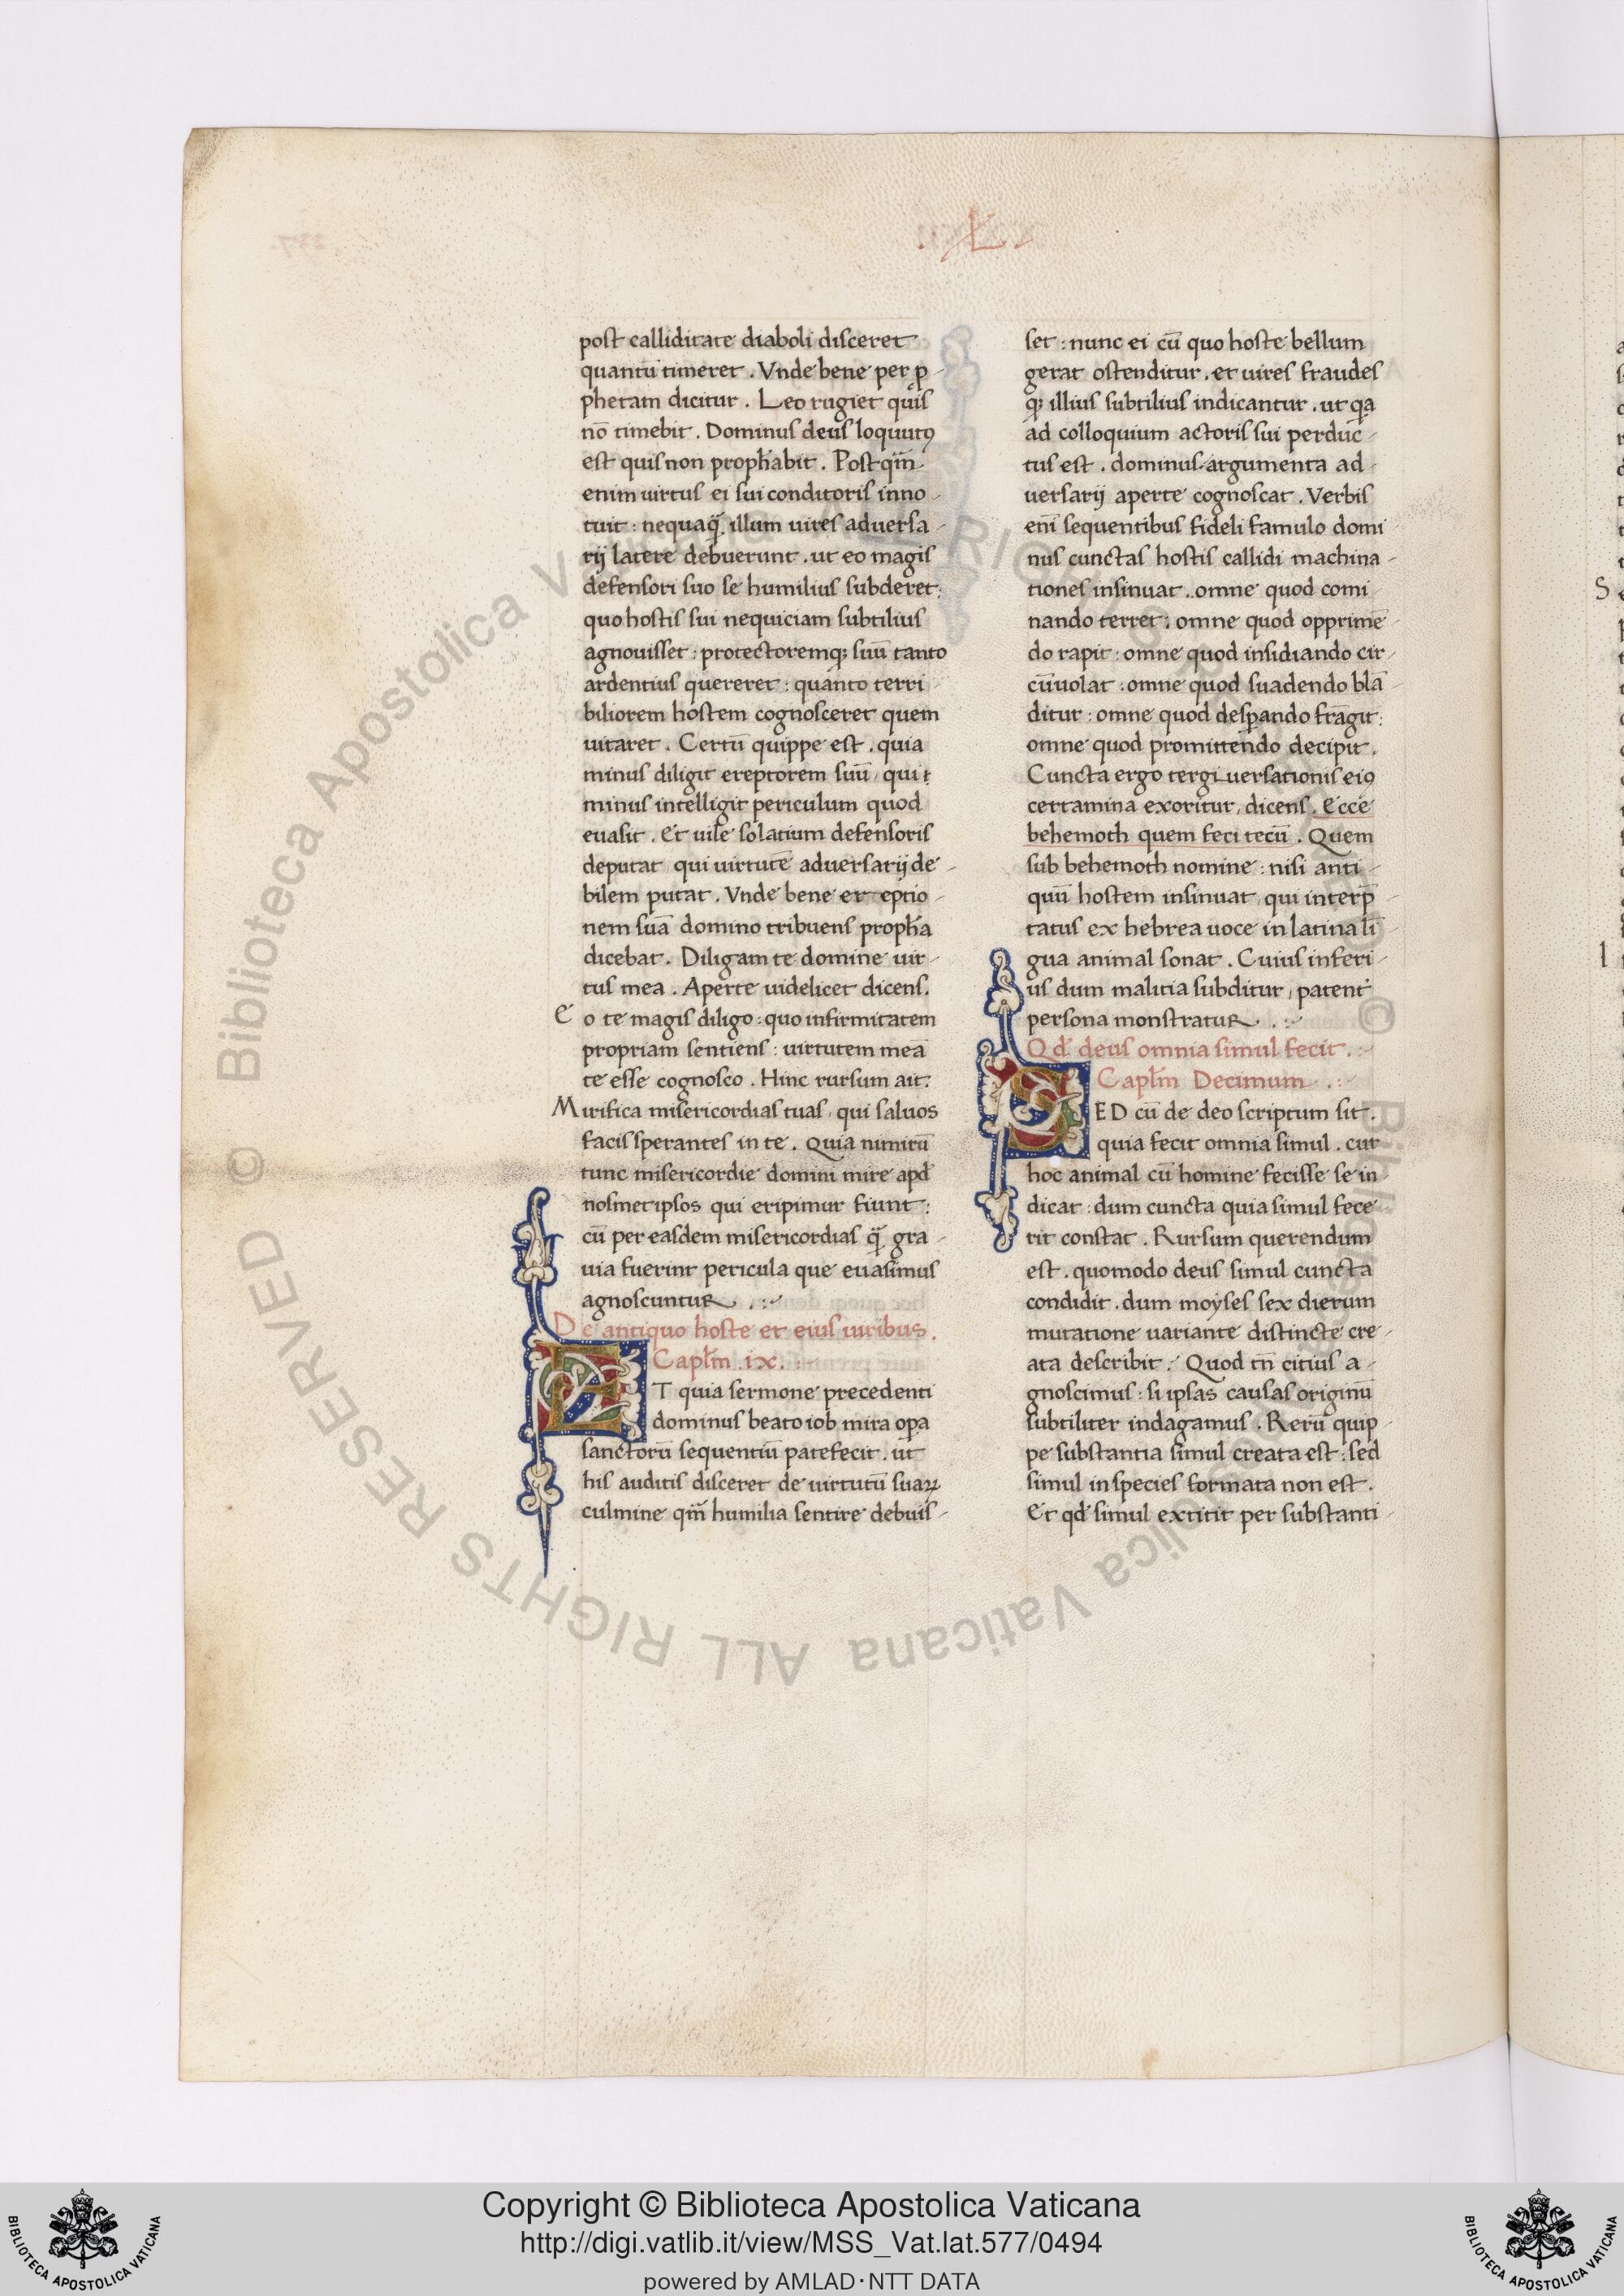 .L.
post calliditate diaboli disceret
quantū timeret . Vnde bene per p̄
phetam dicitur . Leo rugiet quis
nō timebit . Dominus deus loquutꝰ
est quis non proph̄abit . Postqm̄
enim uirtus ei sui conditoris inno
tuit : nequaq̄ illum uires aduersa
rij latere debuerunt . ut eo magis
defensori suo se humilius subderet :
quo hostis sui nequiciam subtilius
agnouisset : protectoremq; suū tanto
ardentius quereret : quanto terri
biliorem hostem cognosceret quem
uitaret . Certū quippe est . quia
minus diligit ereptorem suū , qui
minus intelligit periculum quod
euasit . Et uile solatium defensoris
deputat qui uirtutē aduersarij de
bilem putat . Vnde bene ereptio
nem suā domino tribuens proph̄a
dicebat . Diligam te domine uir
tus mea . Aperte uidelicet dicens .
E o te magis diligo : quo infirmitatem
propriam sentiens : uirtutem meā
te esse cognosco . Hinc rursum ait .
Mirifica misericordias tuas , qui saluos
facis sperantes in te . Quia nimirū
tunc misericordie domini mire apd̄
nosmet ipsos qui eripimur fiunt :
cū per easdem misericordias q̄ gra
uia fuerint pericula que euasimus
agnoscuntur . :
De antiquo hoste et eius uiribus .
Capl̄m .ix. :
ET quia sermone precedenti
dominus beato iob mira opa
sanctorū sequentiū patefecit . ut
his auditis disceret de uirtutū suaꝝ
culmine qm̄ humilia sentire debuis
set : nunc ei cū quo hoste bellum
gerat ostenditur . et uires fraudes
q; illius subtilius indicantur . ut qa
ad colloquium actoris sui perduc
tus est . dominus argumenta ad
uersarij aperte cognoscat . Verbis
eni̅ sequentibus fideli famulo domi
nus cunctas hostis callidi machina
tiones insinuat . omne quod comi
nando terret : omne quod opprimē
do rapit : omne quod insidiando cir
cūuolat : omne quod suadendo blā
ditur : omne quod desꝑando frāgit :
omne quod promittendo decipit .
Cuncta ergo tergiuersationis eiꝰ
certamina exoritur , dicens . Ecce
behemoth quem feci tecū . Quem
sub behemoth nomine : nisi anti
quū hostem insinuat , qui interp̄
tatus ex hebrea uoce in latina li̅
gua animal sonat . Cuius inferi
us dum malitia subditur , patent̄
persona monstratur . :
Qd̄ deus omnia simul fecit . :
Capl̄m Decimum . :
SED cū de deo scriptum sit .
quia fecit omnia simul . cur
hoc animal cū homine fecisse se in
dicat : dum cuncta quia simul fece
rit constat . Rursum querendum
est . quomodo deus simul cuncta
condidit . dum moyses sex dierum
mutatione uariante distincte cre
ata describit . Quod tn̄ citius a
gnoscimus : si ipsas causas originū
subtiliter indagamus . Rerū quip
pe substantia simul creata est : sed
simul in species formata non est .
Et qd̄ simul extitit per substanti
© Biblioteca Apostolica Vaticana ALL RIGHTS RESERVED
Copyright © Biblioteca Apostolica Vaticana
http://digi.vatlib.it/view/MSS_Vat.lat.577/0494
powered by AMLAD·NTT DATA
BIBLIOTECA APOSTOLICA VATICANA
BIBLIOTECA APOSTOLICA VATICANA